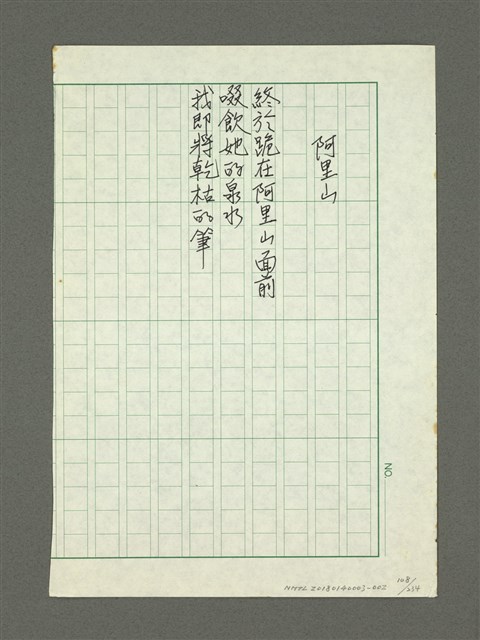 阿里山
終於跪在阿里山面前
啜飲她的泉水
我即將乾枯的筆
NO.
NMTL20180140003-002
108/234